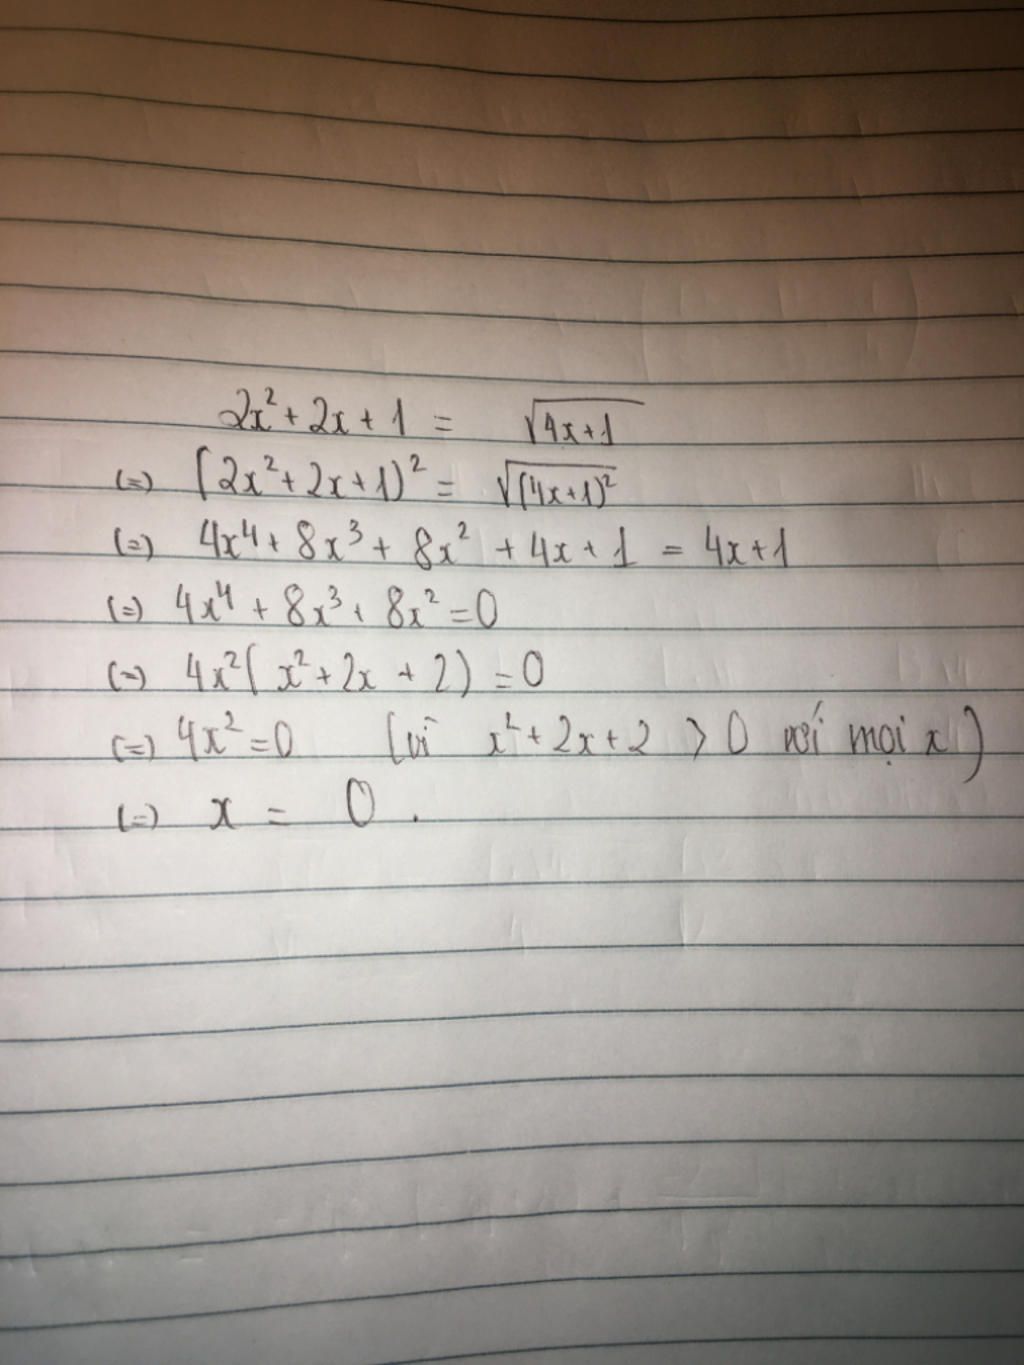 2x² + 2x + 1 = √4x+1
(=) (2x² + 2x + 1)² = √(4x+1)²
(=) 4x⁴ + 8x³ + 8x² + 4x + 1 = 4x+1
(=) 4x⁴ + 8x³ + 8x² = 0
(=) 4x² ( x² + 2x + 2 ) = 0
(=) 4x² = 0 (vì x² + 2x + 2 > 0 với mọi x)
(=) x = 0 .